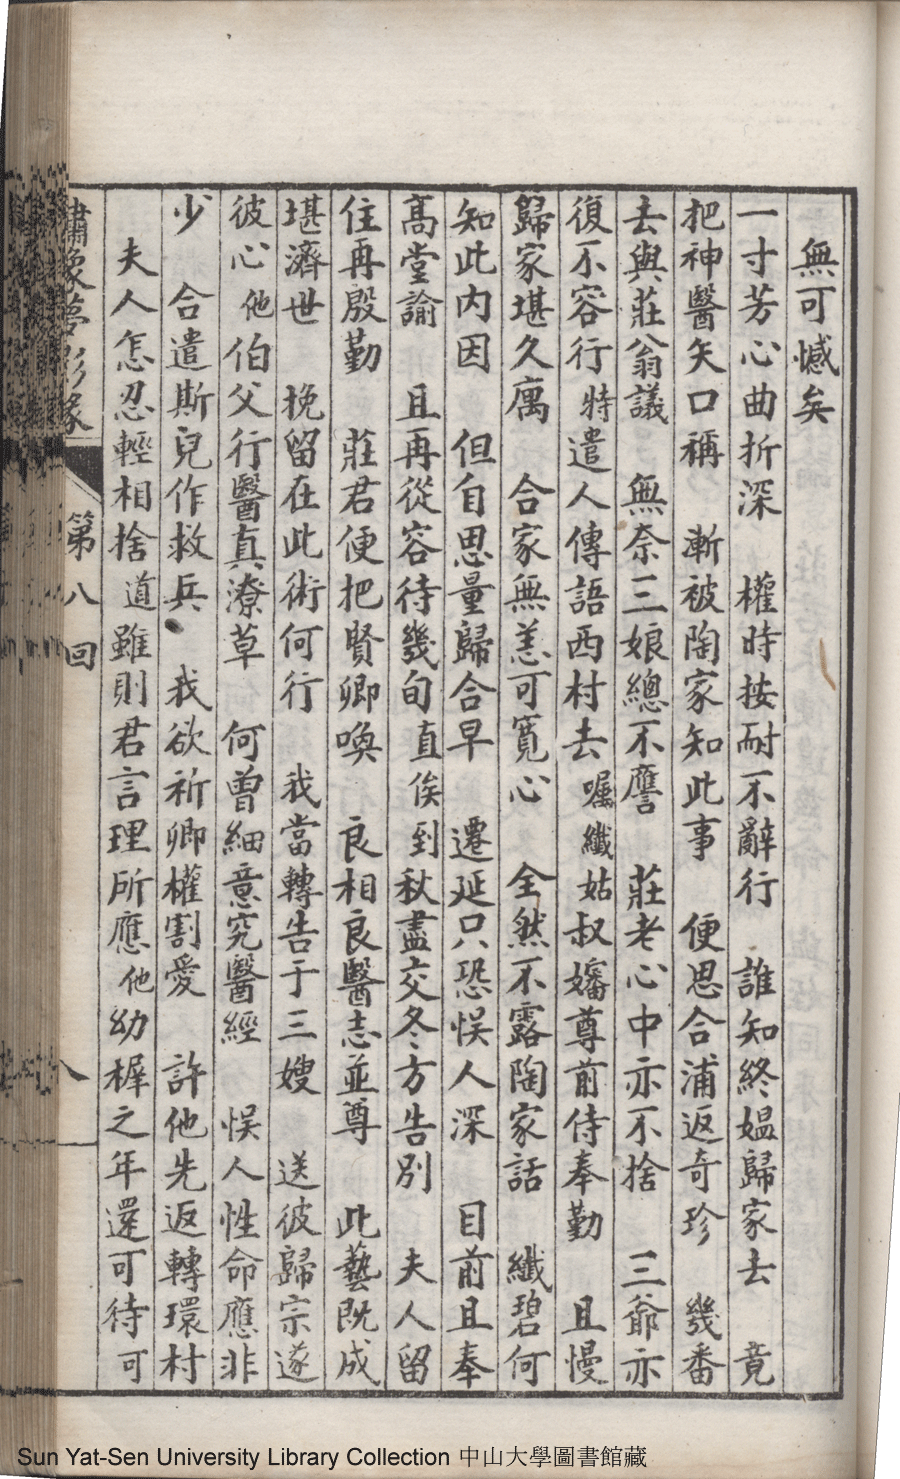 無可憾矣
一寸芳心曲折深　權時按耐不辭行　誰知終媼歸家去　竟
把神醫矢口稱　漸被陶家知此事　便思合浦返奇珍　幾番
去與莊翁議　無奈三娘總不譍　莊老心中亦不捨　三爺亦
復不容行　特遣人傳語西村去　囑纖姑叔嬸尊前侍奉勤　且慢
歸家堪久寓　合家無恙可寬心　全然不露陶家話　纖碧何
知此內因　但自思量歸合早　遷延只恐悞人深　目前且奉
高堂諭　且再從容待幾旬　直俟到秋盡交冬方告別　夫人留
住再殷勤　莊君便把賢卿喚　良相良醫志並尊　此藝既成
堪濟世　挽留在此術何行　我當轉告于三嫂　送彼歸宗遂
彼心　他伯父行醫真潦草　何曾細意究醫經　悞人性命應非
少　合遣斯兒作救兵　我欲祈卿權割愛　許他先返轉環村
夫人怎忍輕相捨　道雖則君言理所應　他幼樨之年還可待　可
繡像夢影緣
第八回
八
Sun Yat-Sen University Library Collection 中山大學圖書館藏